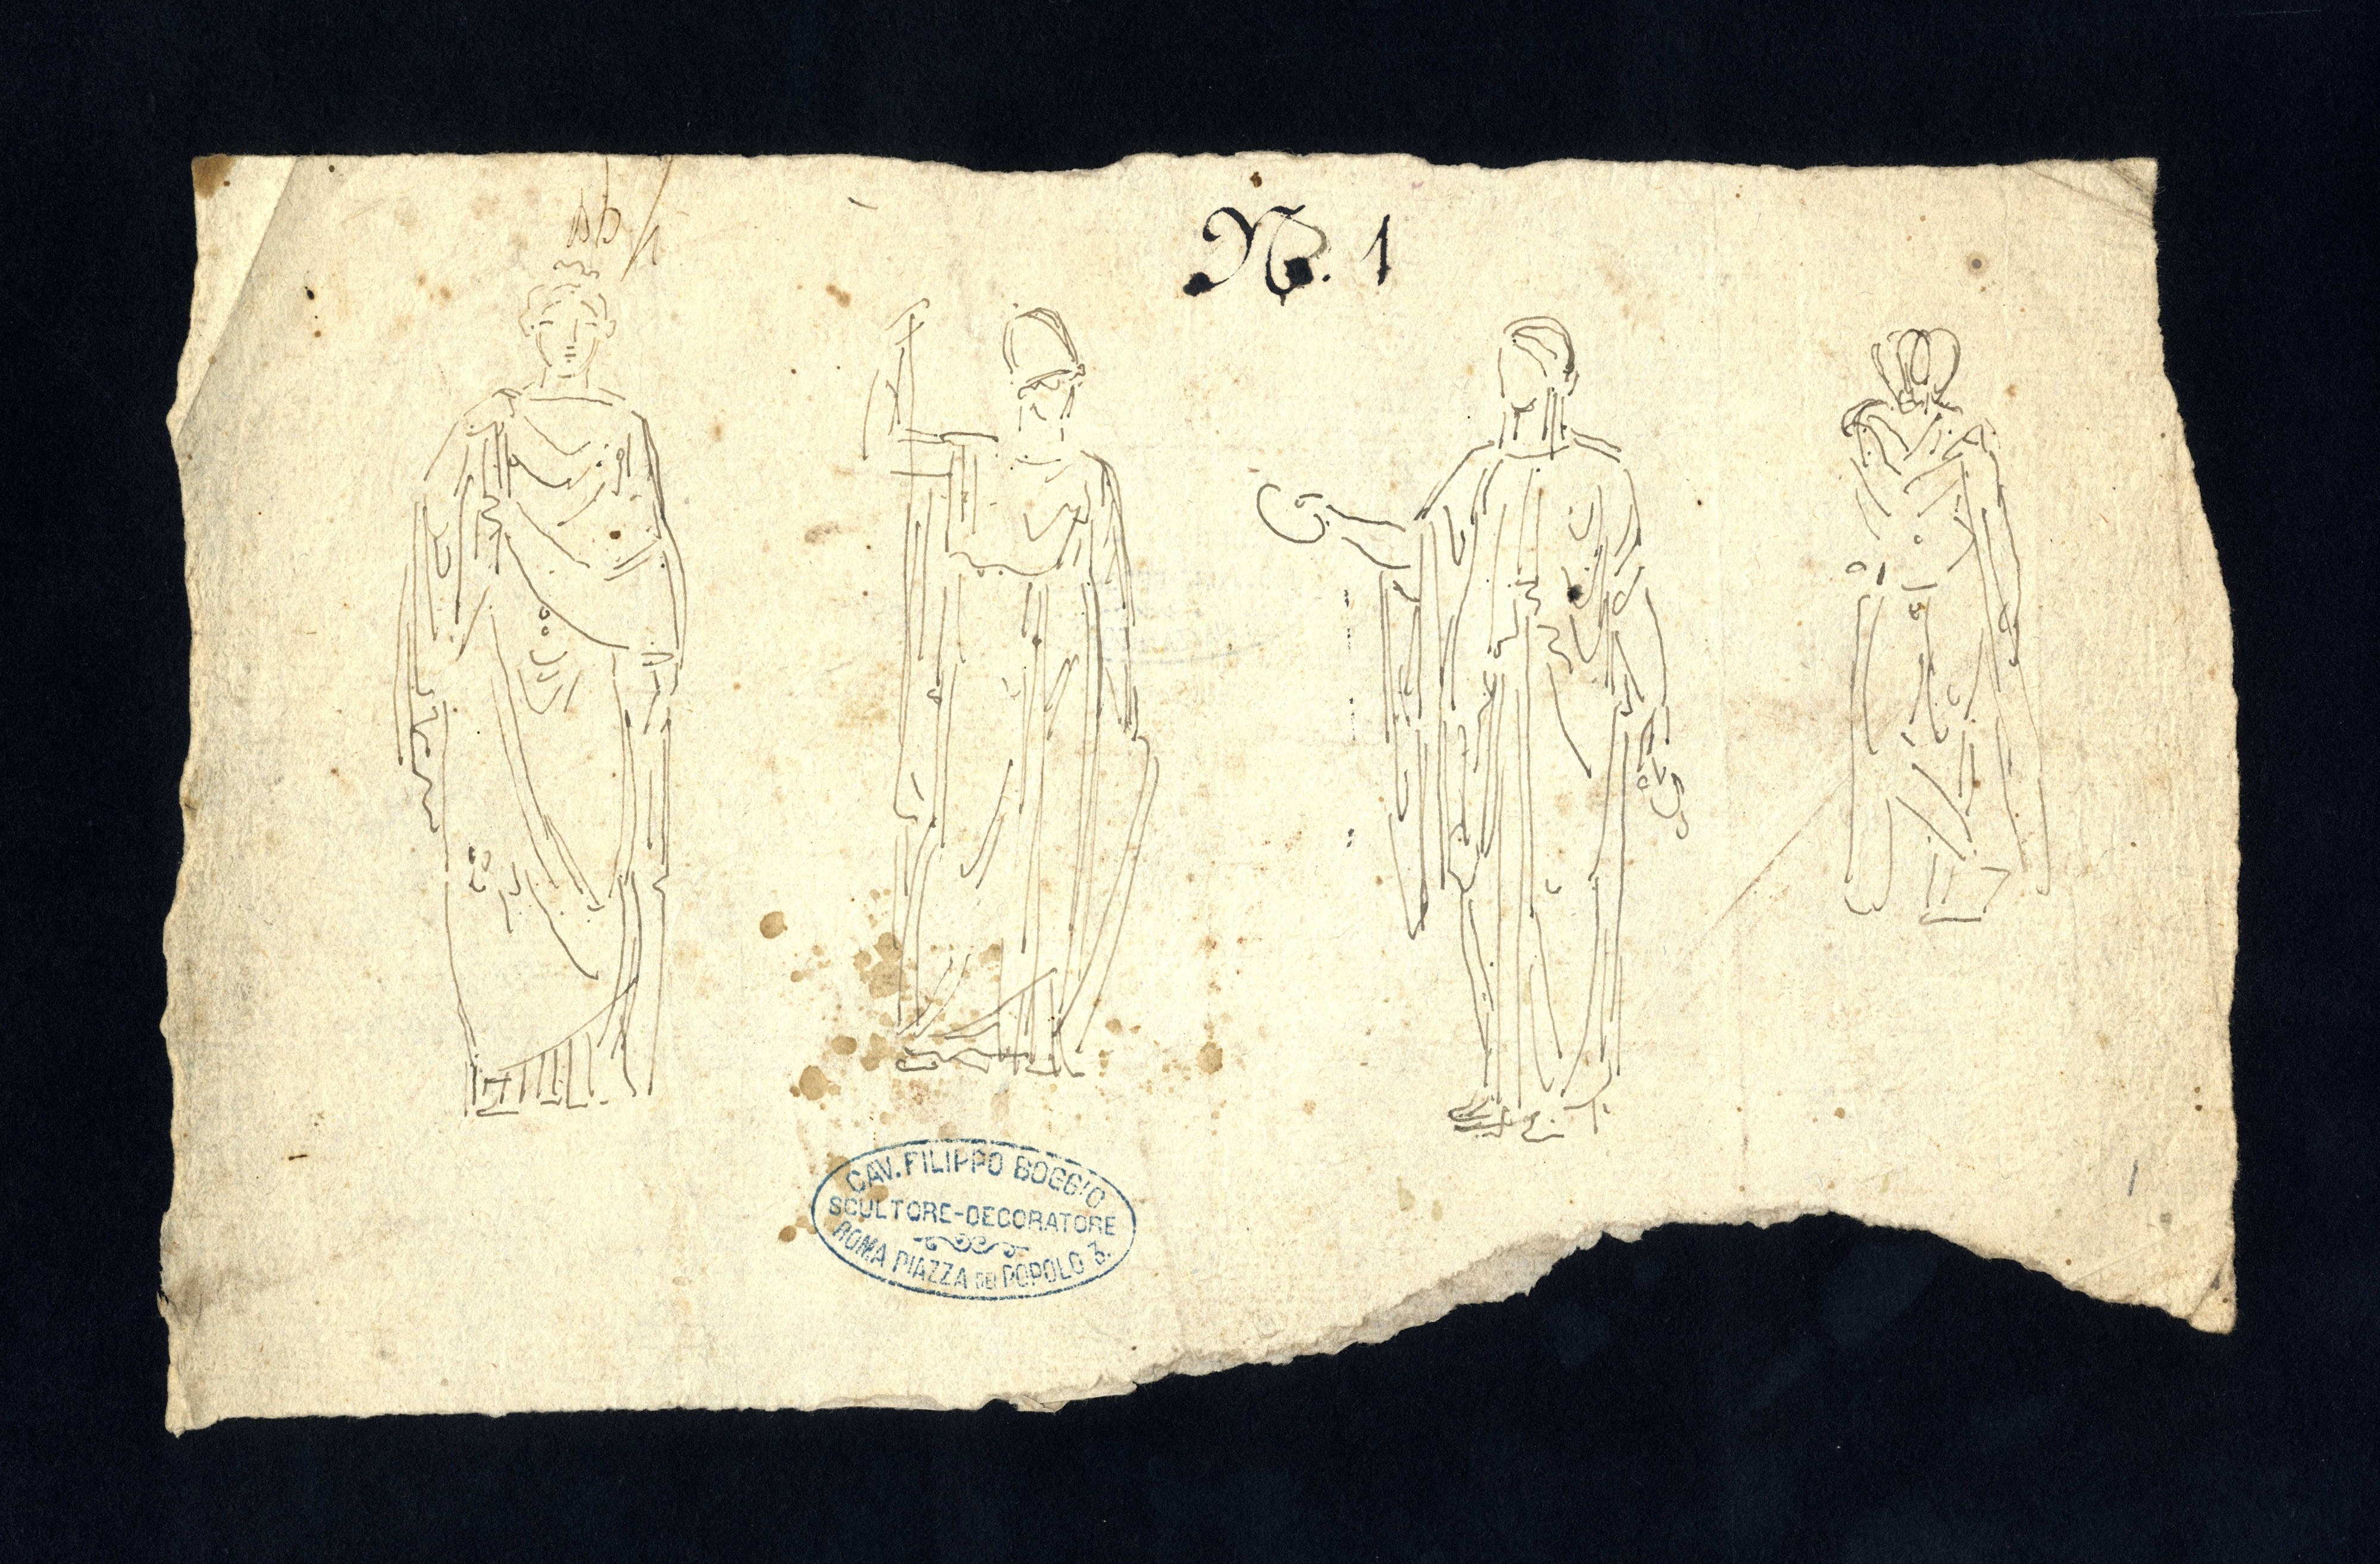 N. 1
CAV. FILIPPO BOGGIO
SCULTORE-DECORATORE
ROMA PIAZZA DEL POPOLO 3.